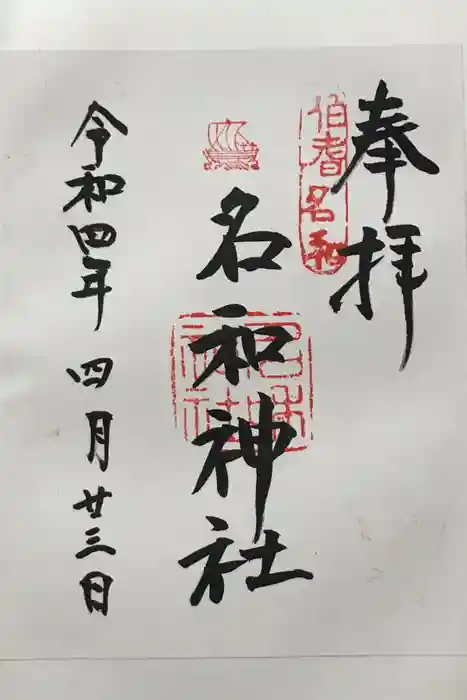 奉拝
伯耆名和
名和神社
令和四年 四月廿三日